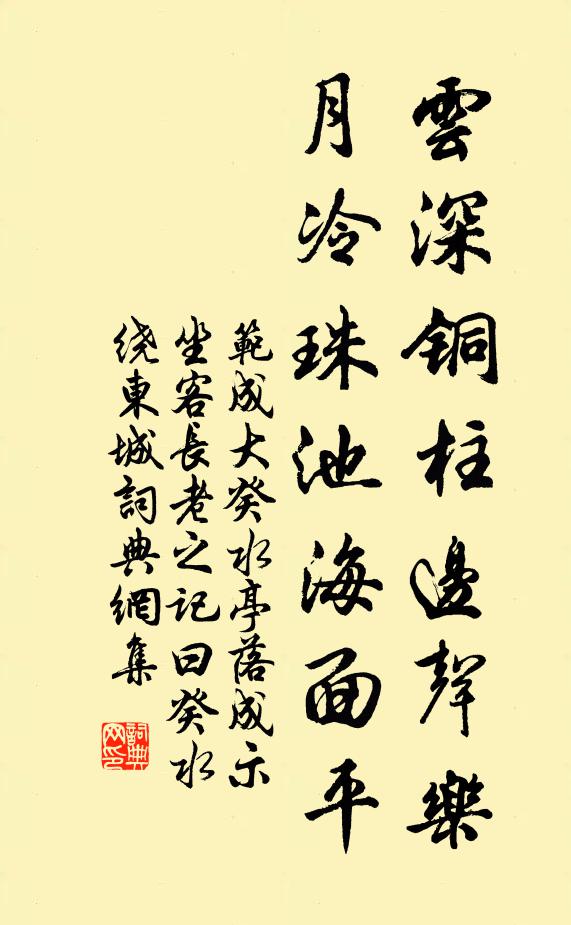 雲深銅柱邊聲樂
月冷珠池海面平
範成大癸水亭落成示
坐客長老之記曰癸水
绕東城詞典網集
詞典網印